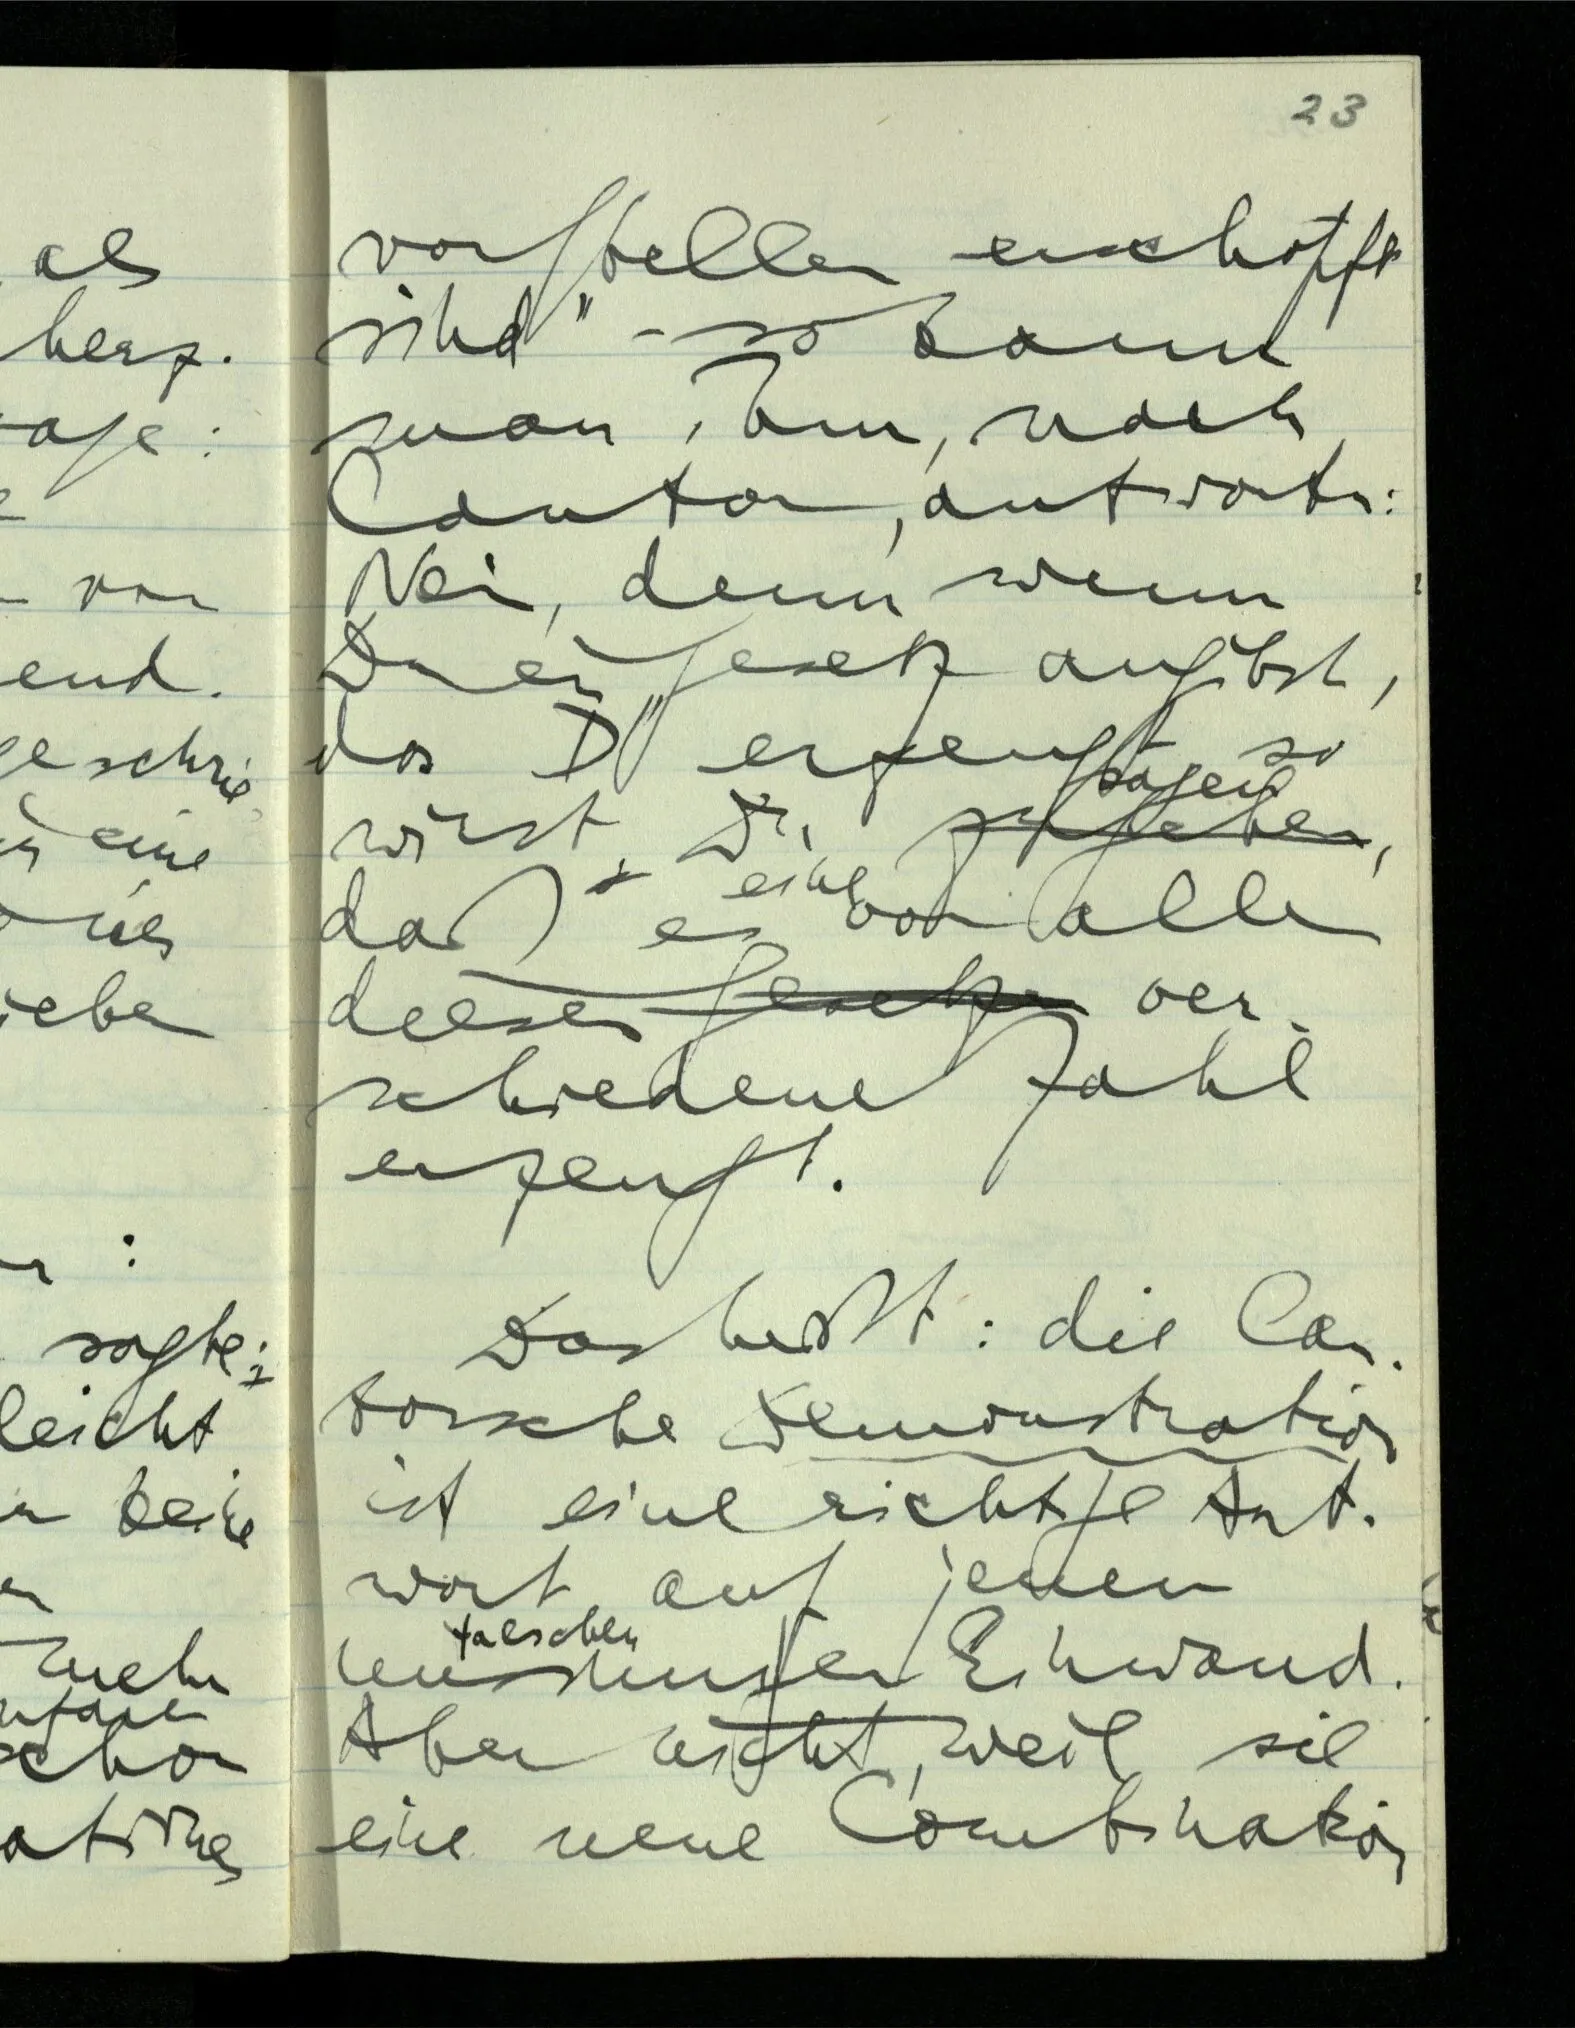 als
von
end.
geschrie
eine
sagte:
leicht
keine
mehr
schon
23
vorstellen erschöpft
sind" – so kann
man ihm, nach
Cantor, antworten:
Nein, denn wenn
Du ein Gesetz angibst,
das D" erzeugt so
sagen
wirst Du zugeben,
eine
daß es von allen
diesen Gesetzen ver-
schiedene Zahl
erzeugt.
Das heißt: die Can-
torsche Demonstration
ist eine richtige Ant-
wort auf jenen
falschen
unsinnigen Einwand.
Aber nicht, weil sie
eine neue Combination